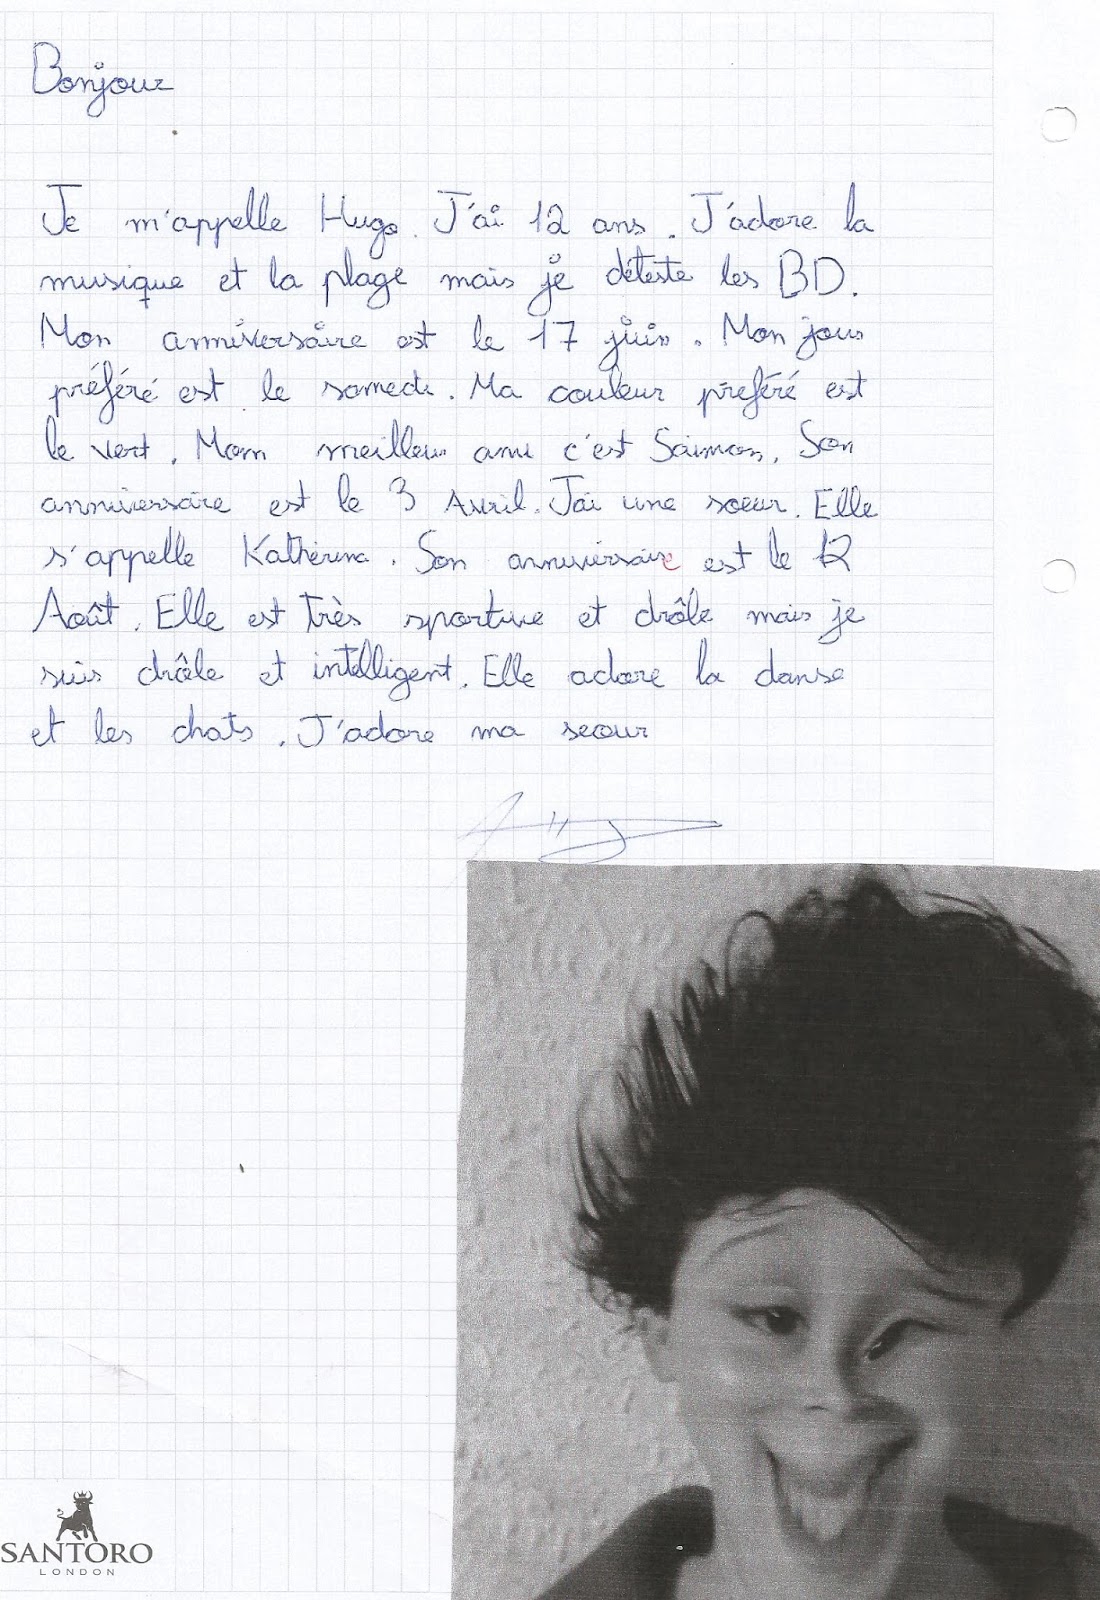 Bonjour
Je m'appelle Hugo. J'ai 12 ans. J'adore la
musique et la plage mais je déteste les BD.
Mon anniversaire est le 17 juin. Mon jour
préféré est le samedi. Ma couleur preféré est
le vert. Mon meilleur ami c'est Saimon. Son
anniversaire est le 3 Avril. J'ai une soeur. Elle
s'appelle Katherina. Son anniversaire est le 12
Août. Elle est très sportive et drôle mais je
suis drôle et intelligent. Elle adore la danse
et les chats. J'adore ma seour
SANTORO
LONDON